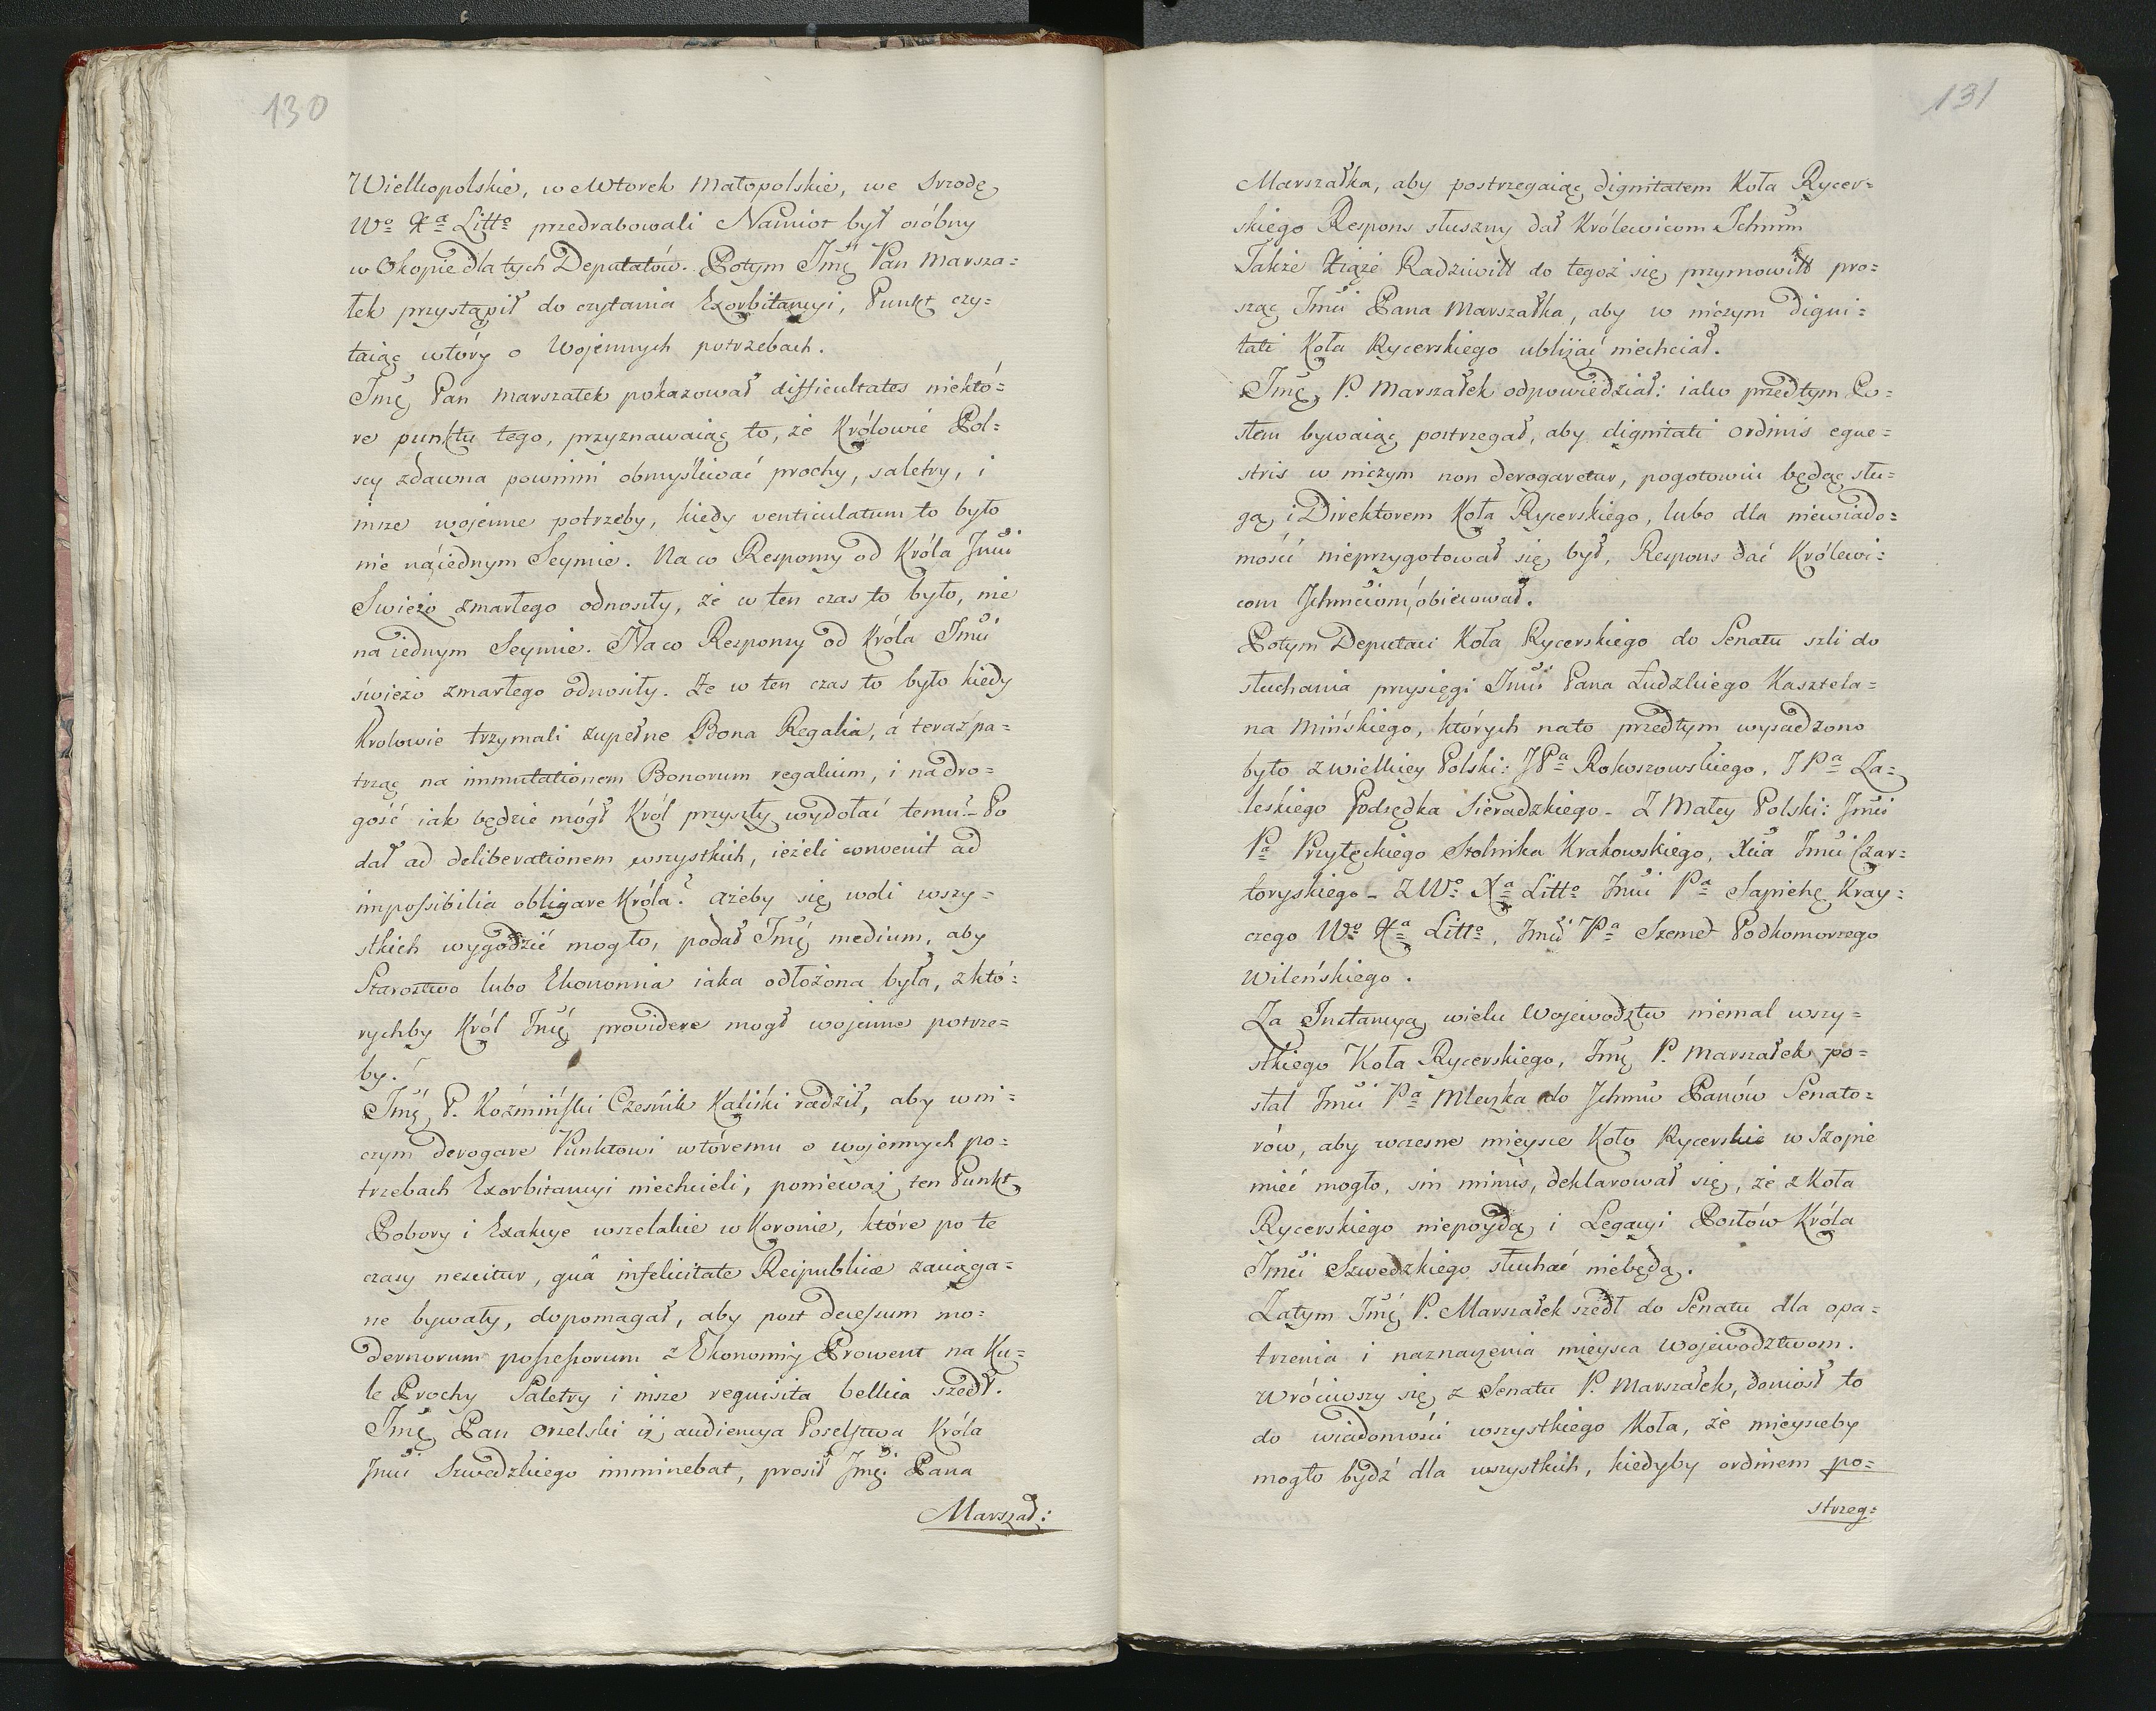 130
Wielkopolskie, we Wtorek Małopolskie, we Srzodę
Wo Xa Litto przedrabowali Namiot był osóbny
w Okopie dla tych Deputatów. Potym Jmę Pan Marsza=
łek przystąpił do czytania Exorbitancyi, Punkt czy=
taiąc wtóry o Wojennych potrzebach.
Jmę Pan Marszałek pokazował difficultates niektó=
re punktu tego, przyznawaiąc to, że Królowie Pol=
scy zdawna powinni obmyśliwać prochy, saletry, i
insze wojenne potrzeby, kiedy venticulatum to było
nie náiednym Seymie. Na co Responsy od Króla Jmci
Swieżo zmarłego odnosiły, że w ten czas to było, nie
na iednym Seymie. Na co Responsy od Króla Jmci
świeżo zmarłego odnosiły. Że w ten czas to było kiedy
Krolowie trzymali zupełne Bona Regalia, á teraz pa=
trząc na immutationem Bonorum regalium, i na dro=
gość iak będzie mógł Król przyszły wydołać temu? Po
dał ad deliberationem wszystkich, ieżeli convenit ad
impossibilia obligare Króla? ażeby się woli wszy=
stkich wygodzić mogło, podał Jmę medium, aby
Starostwo lubo Ekonomia iaka odłożona była, z któ=
rychby Król Jmę providere mogł wojenne potrze=
by.
Jmę P. Koźmiński Cześnik Kaliski radził, aby w ni=
czym derogare Punktowi wtóremu o wojennych po=
trzebach Exorbitancyi niechcieli, ponieważ ten Punkt
Pobory i Exakcye wszelakie w Koronie, które po te
czasy nescitur, quâ infelicitate Reipublicæ zaciąga=
ne bywały, dopomagał, aby post decessum mo=
dernorum possessorum z Ekonomiy Prowent na Ku=
le Prochy Saletry i insze requisita bellica szedł.
Jmę Pan Orzelski iż audiencya Poselstwa Króla
Jmci Szwedzkiego imminebat, prosił Jmę Pana
Marszał:
131
Marszałka, aby postrzegaiąc dignitatem Koła Rycer=
skiego Respons słuszny dał Królewicom Ichmm
Także Xiąże Radziwiłł do tegoż się przymowiłł pro=
sząc Jmci Pana Marszałka, aby w niczym digni=
tati Koła Rycerskiego ubliżać niechciał.
Jmę P. Marszałek odpowiedział: iako przedtym Po=
słem bywaiąc postrzegał, aby dignitati ordinis eque=
stris w niczym non derogaretur, pogotowiu będąc słu=
gą i Direktorem Koła Rycerskiego, lubo dla niewiado=
mości nieprzygotował się był, Respons dać Królewi=
com Ichmciom, obiecował.
Potym Deputaci Koła Rycerskiego do Senatu szli do
słuchania przysięgi Jmci Pana Łudzkiego Kasztela=
na Mińskiego, których nato przedtym wysadzono
było z wielkiey Polski: J Pa Rokoszowskiego, J Pa Za=
leskiego Podsędka Sieradzkiego - Z Małey Polski: Jmci
Pa Przyłęckiego Stolnika Krakowskiego, Xcia Jmci Czar=
toryskiego - Z Wo Xa Litto Jmci Pa Sapiehę Kray=
czego Wo Xa Litto, Jmci Pa Szemet Podkomorzego
Wileńskiego.
Za Instancyą wielu Wojewodztw niemal wszy=
stkiego Koła Rycerskiego, Jmę P. Marszałek po=
słał Jmci Pa Mleczka do Ichmw Panów Senato=
rów, aby wczesne mieysce Koło Rycerskie w Szopie
mieć mogło, sin minus, deklarował się, że z Koła
Rycerskiego niepoydą i Legacyi Posłów Króla
Jmci Szwedzkiego słuchać niebędą.
Zatym Jmę P. Marszałek szedł do Senatu dla opa=
trzenia i naznaczenia mieysca Wojewodztwom.
Wróciwszy się z Senatu P. Marszałek, doniosł to
do wiadomości wszystkiego Koła, że mieysceby
mogło bydź dla wszystkich, kiedyby ordinem po=
strzeg=